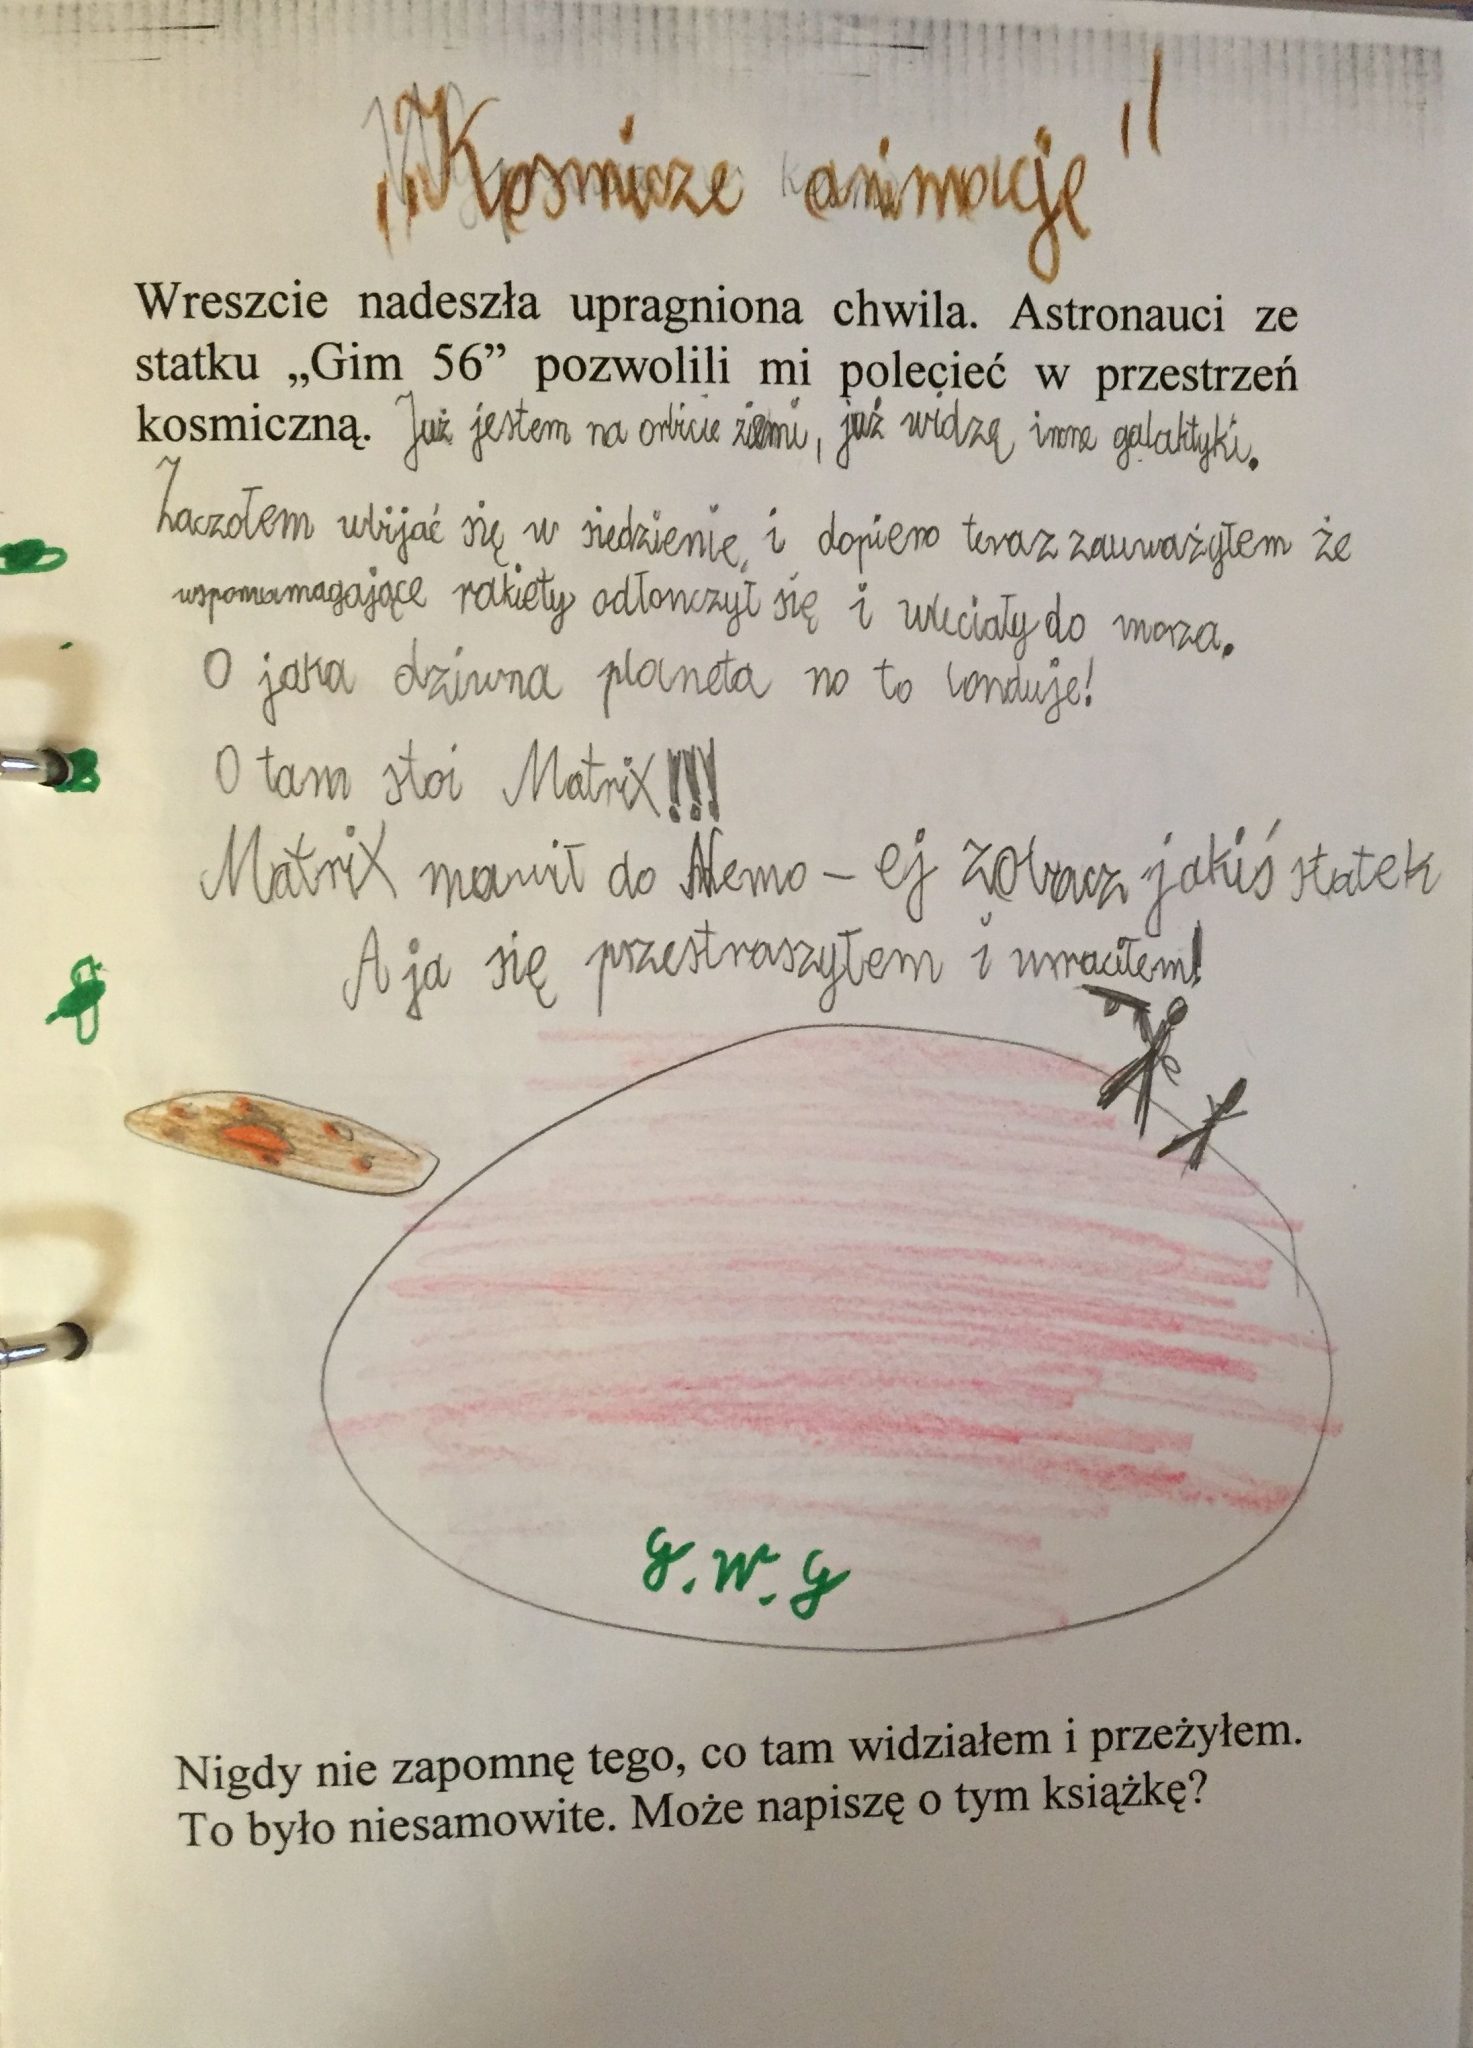 „Kosmicze animacje"
Wreszcie nadeszła upragniona chwila. Astronauci ze
statku „Gim 56” pozwolili mi polecieć w przestrzeń
kosmiczną. Już jestem na orbicie ziemi, już widzę inne galaktyki.
Zaczołem wbijać się w siedzienie, i dopiero teraz zauważyłem że
wspomamagające rakiety odłonczył się i wleciały do morza.
O jaka dziwna planeta no to londuje!
O tam stoi Matrix!!!
Matrix mówił do Nemo – ej zobacz jakiś statek
A ja się przestraszyłem i wraciłem!
G.W.G
Nigdy nie zapomnę tego, co tam widziałem i przeżyłem.
To było niesamowite. Może napiszę o tym książkę?